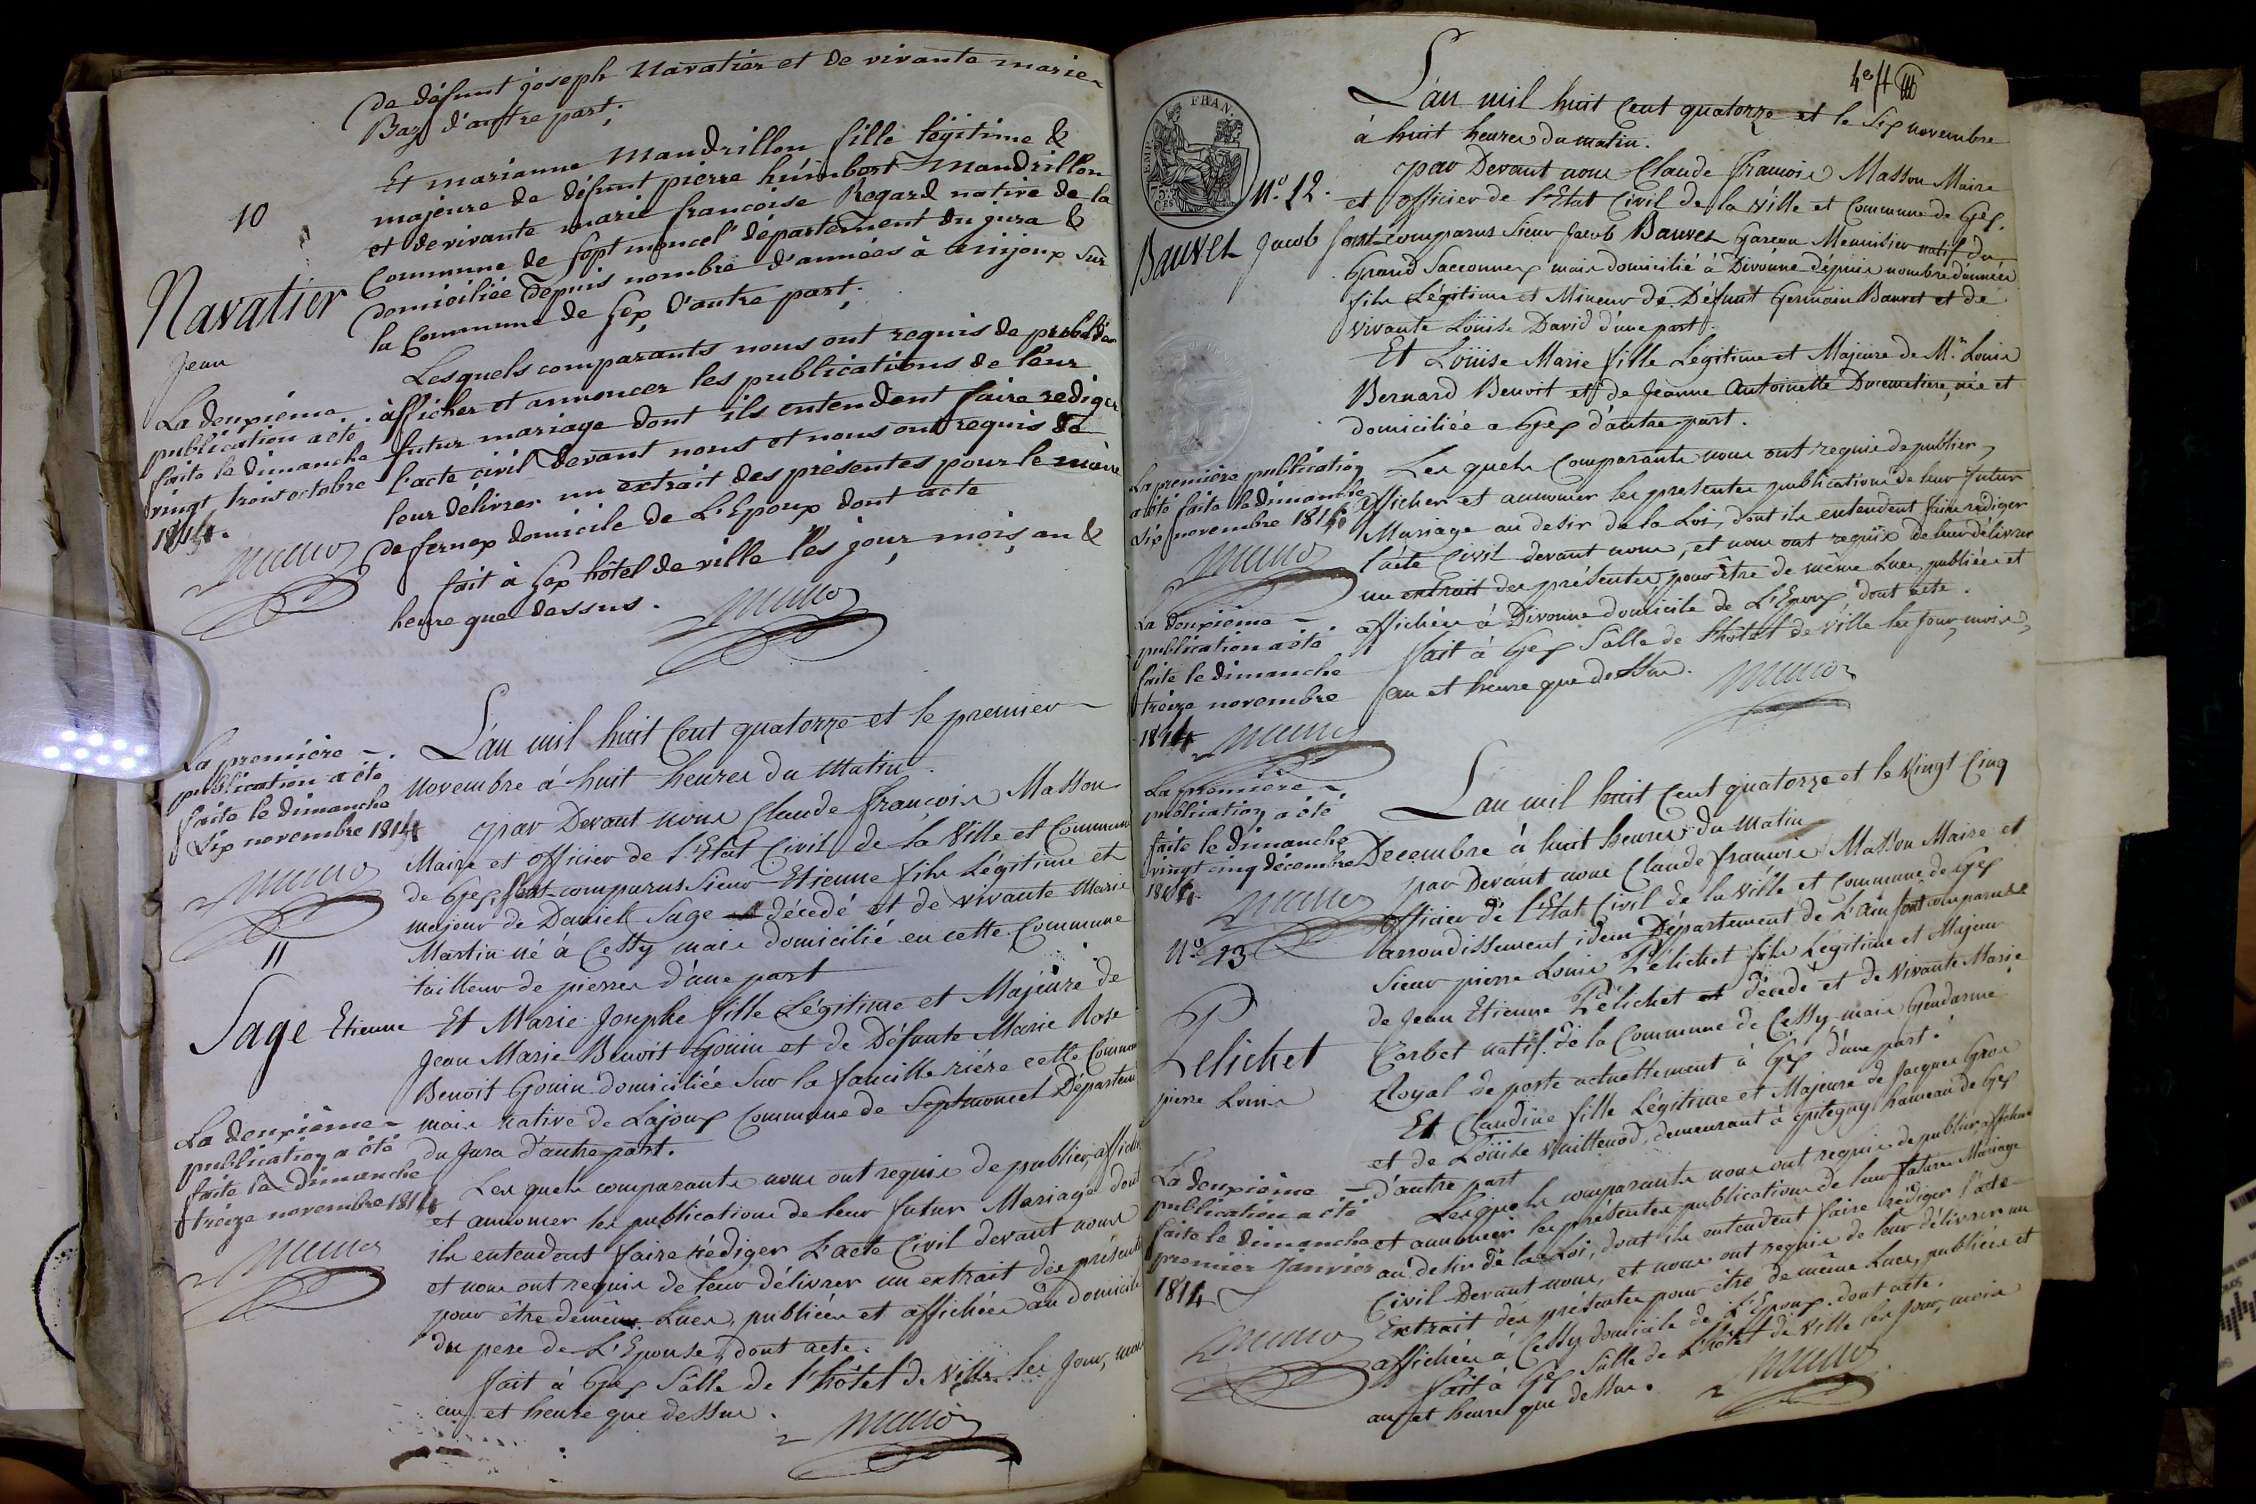 de défunt joseph Navatier et de vivante marie
Baz d'autre part;
Et marianne Mandrillon fille légitime &
majeure de défunt pierre humbert Mandrillon
et de vivante marie françoise Regard native de la
Commune de sept moncel département du jura &
domiciliée depuis nombre d'années à ainjoux sur
la Commune de Gex, d'autre part;
Lesquels comparants nous ont requis de publier
afficher et annoncer les publications de leur
futur mariage dont ils entendent faire rediger
l'acte civil devant nous et nous ont requis de
leur délivrer un extrait des présentes pour le maire
de fernex domicile de L'Epoux dont acte
fait à Gex hôtel de ville les jour, mois, an &
heure que dessus.
10
Navatier
Jean
La deuxième
publication a été
faite le dimanche
vingt trois octobre
1814.
L'an mil huit Cent quatorze et le premier
novembre à huit heures du Matin.
par Devant nous Claude françois Masson
Maire et officier de l'Etat Civil de la Ville et Commune
de Gex, sont comparus Sieur Etienne fils Légitime et
majeur de Sage décédé et de vivante Marie
Martin né à Cessy mais domicilié en cette Commune
tailleur de pierres d'une part
Et Marie Josephe fille Légitime et Majeure de
Jean Marie Benoit Gouin et de Défunte Marie Rose
Benoit Gouin domiciliée Sur la faucille rière cette Commune
mais native de Lajoux Commune de Septmoncel Départem
du Jura d'autre part.
Les quels comparants nous ont requis de publier, affiche
et annoncer les publications de leur futur Mariage dont
ils entendent faire rédiger L'acte Civil devant nous
et nous ont requis de leur délivrer un extrait des présent
pour être de même Lues, publiées et affichées au domicile
du pere de L'Epouse, dont acte.
fait à Gex Salle de l'hôtel de Ville les Jour, moi
an et heure que dessus.
La première
publication a été
faite le dimanche
six novembre 1814
11
Sage Etienne
La deuxième
publication a été
faite le dimanche
treize novembre 1814
4e f
L'an mil huit Cent quatorze et le Six novembre
à huit heures du matin.
par Devant nous Claude françois Masson Maire
et officier de l'Etat Civil de la Ville et Commune de Gex.
sont comparus Sieur Jacob Bauvet Garçon Menuisier natif du
Grand Sacconnex mais domicilié à Divonne depuis nombre d'années
fils Légitime et Mineur de Défunt Germain Bauvet et de
vivante Loüise David d'une part.
Et Loüise Marie fille Légitime et Majeure de Mr Louis
Bernard Benoit et de Jeanne Antoinette Ducimetiere, née et
domiciliée a Gex d'autre part.
Les quels Comparants nous ont requis de publier,
afficher et annoncer les presentes publications de leur futur
Mariage au desir de la Loi, dont ils entendent faire rediger
l'acte Civil devant nous, et nous ont requis de leur délivrer
un extrait des présentes pour être de même Lues, publiées et
affichées à Divonne domicile de L'Epoux dont acte.
fait à Gex Salle de l'hôtel de Ville les Jour, mois,
an et heure que dessus.
FRAN.
75.
CES
No. 12.
Bauvet Jacob
La première publication
a été faite le dimanche
six novembre 1814
La deuxième
publication a été
faite le dimanche
treize novembre
1814
L'an mil huit Cent quatorze et le Vingt Cinq
Decembre à huit heures du Matin
par Devant nous Claude françois Masson Maire et
officier de l'Etat Civil de la Ville et Commune de Gex
arrondissement idem Département de L'Ain sont comparus
Sieur pierre Louis Pélichet fils Légitime et Majeur
de Jean Etienne Pélichet décédé et de Vivante Marie
Corbet natif de la Commune de Cessy mais Gendarme
Royal de poste actuellement à Gex d'une part.
Et Claudine fille Légitime et Majeure de Jacques Gros
et de Loüise Vuillenod, demeurant à pitegny hameau de Gex
d'autre part
Lesquels comparants nous ont requis de publier, afficher
et annoncer les présentes publications de leur futur Mariage
au desir de la Loi, dont ils entendent faire rédiger l'acte
Civil Devant nous, et nous ont requis de leur délivrer un
Extrait des présentes pour être de même Lues, publiées et
affichées à Cessy domicile de L'Epoux, dont acte.
fait à Gex Salle de L'hôtel de Ville les Jour, mois
an et heure que dessus.
La première
publication a été
faite le dimanche
vingt cinq décembre
1814.
No 13
Pelichet
pierre Louis
La deuxième
publication a été
faite le dimanche
premier janvier
1814